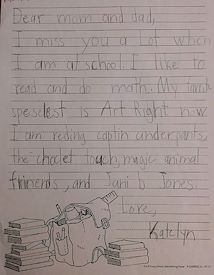 Dear mom and dad,
I miss you a lot when
I am at school. I like to
read and do math. My
speselest is Art Right now
I am reding captin underpants,
the choclet touch, magic animal
frinends, and Jani b Jones.
Love,
Katelyn